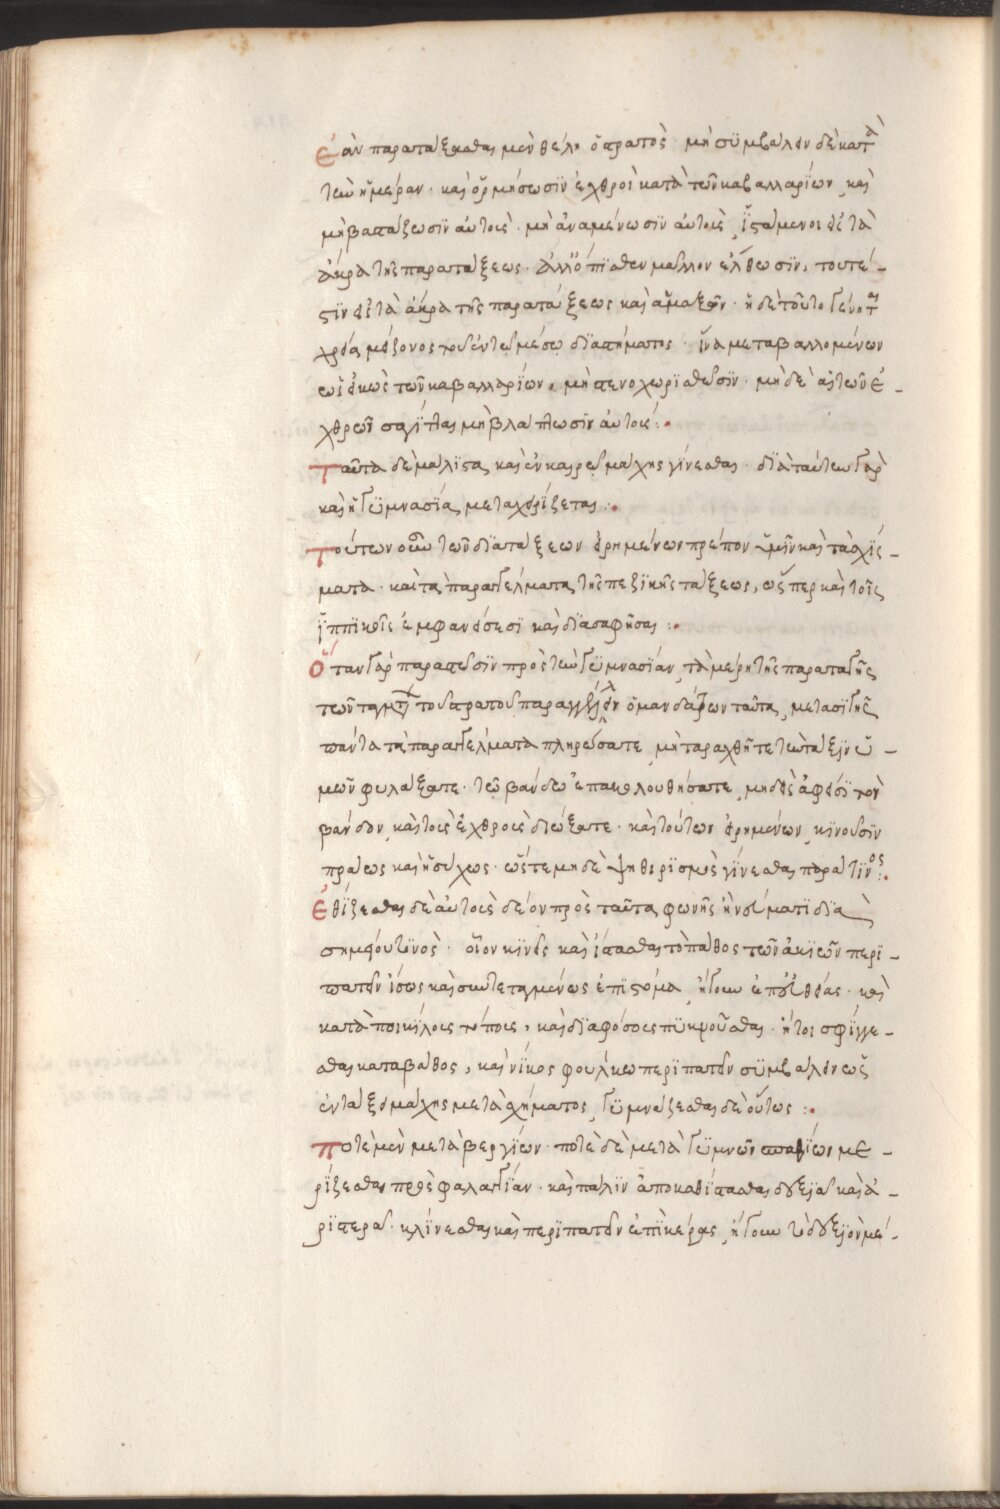 ἐὰν παρατάξασθαι μὲν θέλῃ ὁ στρατὸς· μὴ συμβαλεῖν δὲ κατὰ
τὴν ἡμέραν· καὶ ὁρμήσωσιν ἐχθροὶ κατὰ τῶν καβαλλαρίων, καὶ
μὴ βαστάξωσιν αὐτοὺς· μὴ ἀναμένωσιν αὐτοὺς, ἱστάμενοι εἰς τὰ
ἄκρα τῆς παρατάξεως· ἀλλ' ὄπισθεν μᾶλλον ἔλθωσιν, τουτέ-
στιν εἰς τὰ ἄκρα τῆς παρατάξεως καὶ ἁμαξῶν· εἰ δὲ τοῦτο γένηται
χρεία μείζονος τοῦ ἐν τῷ μέσῳ διαστήματος· ἵνα μεταβαλλομένων
ὡς εἰκὸς τῶν καβαλλαρίων, μὴ στενοχωρισθῶσιν· μηδὲ αἱ τῶν ἐ-
χθρῶν σαγίττας μὴ βλάπτωσιν αὐτούς:
Ταῦτα δὲ μάλιστα, καὶ ἐν καιρῷ μάχης γίνεσθαι· διὰ ταύτην γὰρ
καὶ ἡ γυμνασία, μεταχειρίζεται:
Τούτων οὖν τῶν διατάξεων εἰρημένων πρέπον ἡμῖν καὶ τὰ σχίσ-
ματα· καὶ τὰ παραγγέλματα τῆς πεζικῆς τάξεως, ὥσπερ καὶ τοῖς
ἱππικοῖς ἐμφανείσεσι καὶ διασαφῆσαι:
Ὅταν γὰρ παραστῶσιν πρὸς τὴν γυμνασίαν, τὰ μέρη τῆς παραταγῆς
τῶν ταγμάτων τοῦ στρατοῦ παραγγέλλειν ὁ μανδάτων ταῦτα, μετὰ σιγῆς
πάντα τὰ παραγγέλματα πληρώσατε, μὴ ταραχθῆτε τὴν τάξιν ὑ-
μῶν φυλάξατε· τῷ βάνδῳ ἐπακολουθήσατε, μηδεὶς ἀφείσι τὸν
βάνδον, καὶ τοὺς ἐχθροὺς διώξατε· καὶ τούτων εἰρημένων, κινοῦσιν
πράως καὶ ἡσύχως· ὥστε μηδὲ ψηθυρισμὸς γίνεσθαι παρά τινος:
Ἐθίζεσθαι δὲ αὐτοὺς δέον πρὸς ταῦτα φωνῆς ἢ νεύματι διὰ
σημείου τινὸς· οἷον κινεῖν καὶ ἵστασθαι τὸ πάθος τῶν ἀκιῶν περι-
πατεῖν ἴσως καὶ συντεταγμένως ἐπίστόμα, ἤγουν ἐπ' εὐθείας· καὶ
κατὰ ποικίλους τόπους, καὶ διαφόροις πυκνοῦσθαι· ἤτοι σφίγγε-
σθαι κατὰ βάθος, καὶ νίκος φούλκῳ περιπατεῖν συμβαλεῖν ὡς
ἐν τάξει μάχης μετὰ σχήματος, γυμνάζεσθαι δὲ οὕτως:
Ποτὲ μὲν μετὰ βεργίων· ποτὲ δὲ μετὰ γυμνῶν σπαθίων με-
ρίζεσθαι πρὸς φαλαγγίαν· καὶ πάλιν ἀποκαθίστασθαι δεξιὰ καὶ ἀ-
ριστερὰ· κλίνεσθαι καὶ περιπατεῖν ἐπὶ κέρας, ἤγουν τὸ δεξιὸν μέ-